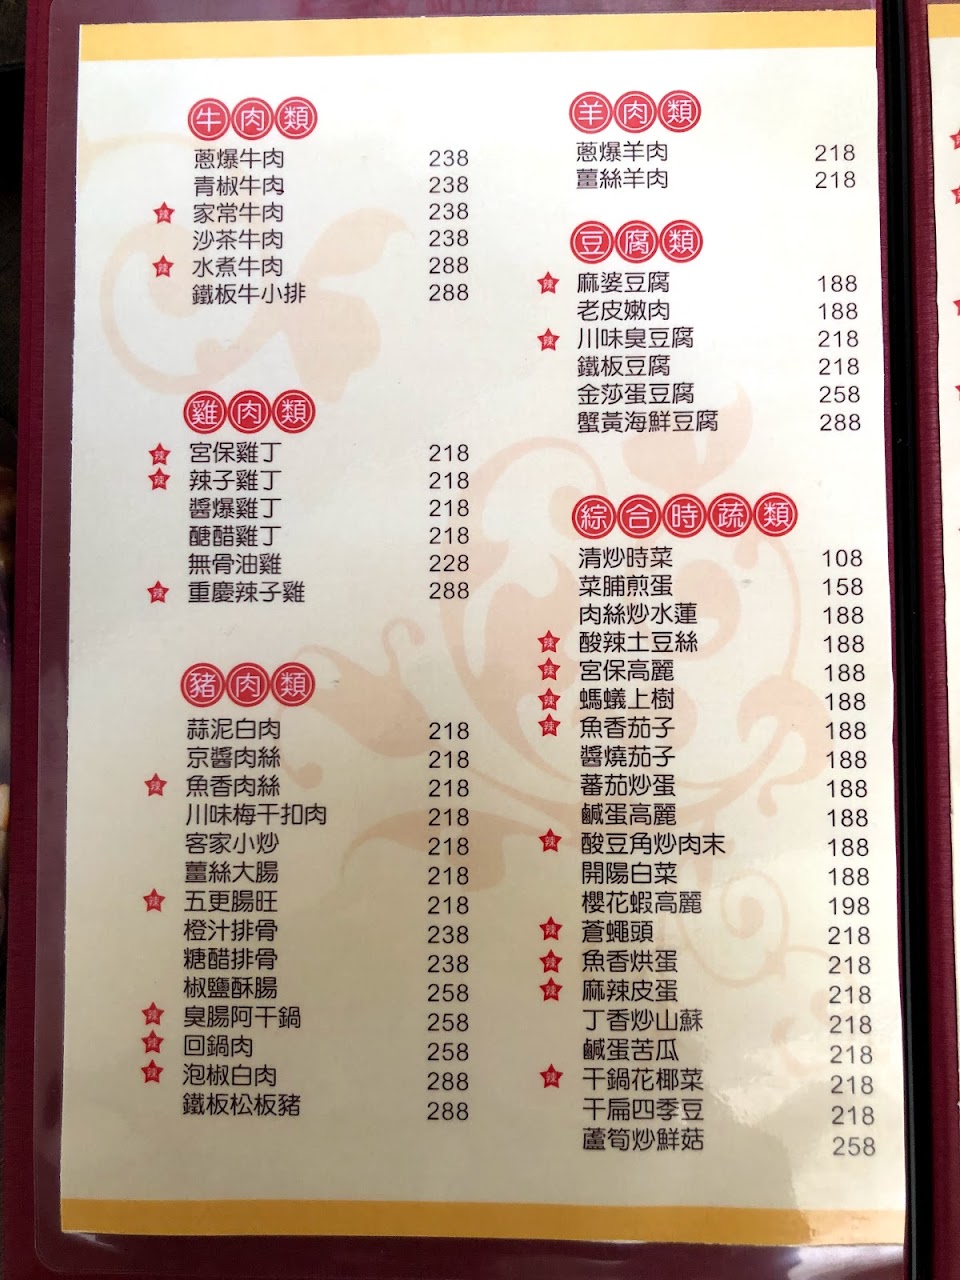 牛肉類
蔥爆牛肉 238
青椒牛肉 238
辣 家常牛肉 238
沙茶牛肉 238
辣 水煮牛肉 288
鐵板牛小排 288
雞肉類
辣 宮保雞丁 218
辣 辣子雞丁 218
醬爆雞丁 218
醣醋雞丁 218
無骨油雞 228
辣 重慶辣子雞 288
豬肉類
蒜泥白肉 218
京醬肉絲 218
辣 魚香肉絲 218
川味梅干扣肉 218
客家小炒 218
薑絲大腸 218
辣 五更腸旺 218
橙汁排骨 238
糖醋排骨 238
椒鹽酥腸 258
辣 臭腸阿干鍋 258
辣 回鍋肉 258
辣 泡椒白肉 288
鐵板松板豬 288
羊肉類
蔥爆羊肉 218
薑絲羊肉 218
豆腐類
辣 麻婆豆腐 188
老皮嫩肉 188
辣 川味臭豆腐 218
鐵板豆腐 218
金莎蛋豆腐 258
蟹黃海鮮豆腐 288
綜合時蔬類
清炒時菜 108
菜脯煎蛋 158
肉絲炒水蓮 188
辣 酸辣土豆絲 188
辣 宮保高麗 188
辣 螞蟻上樹 188
辣 魚香茄子 188
醬燒茄子 188
蕃茄炒蛋 188
鹹蛋高麗 188
辣 酸豆角炒肉末 188
開陽白菜 188
櫻花蝦高麗 198
辣 蒼蠅頭 218
辣 魚香烘蛋 218
辣 麻辣皮蛋 218
丁香炒山蘇 218
鹹蛋苦瓜 218
辣 干鍋花椰菜 218
干扁四季豆 218
蘆筍炒鮮菇 258